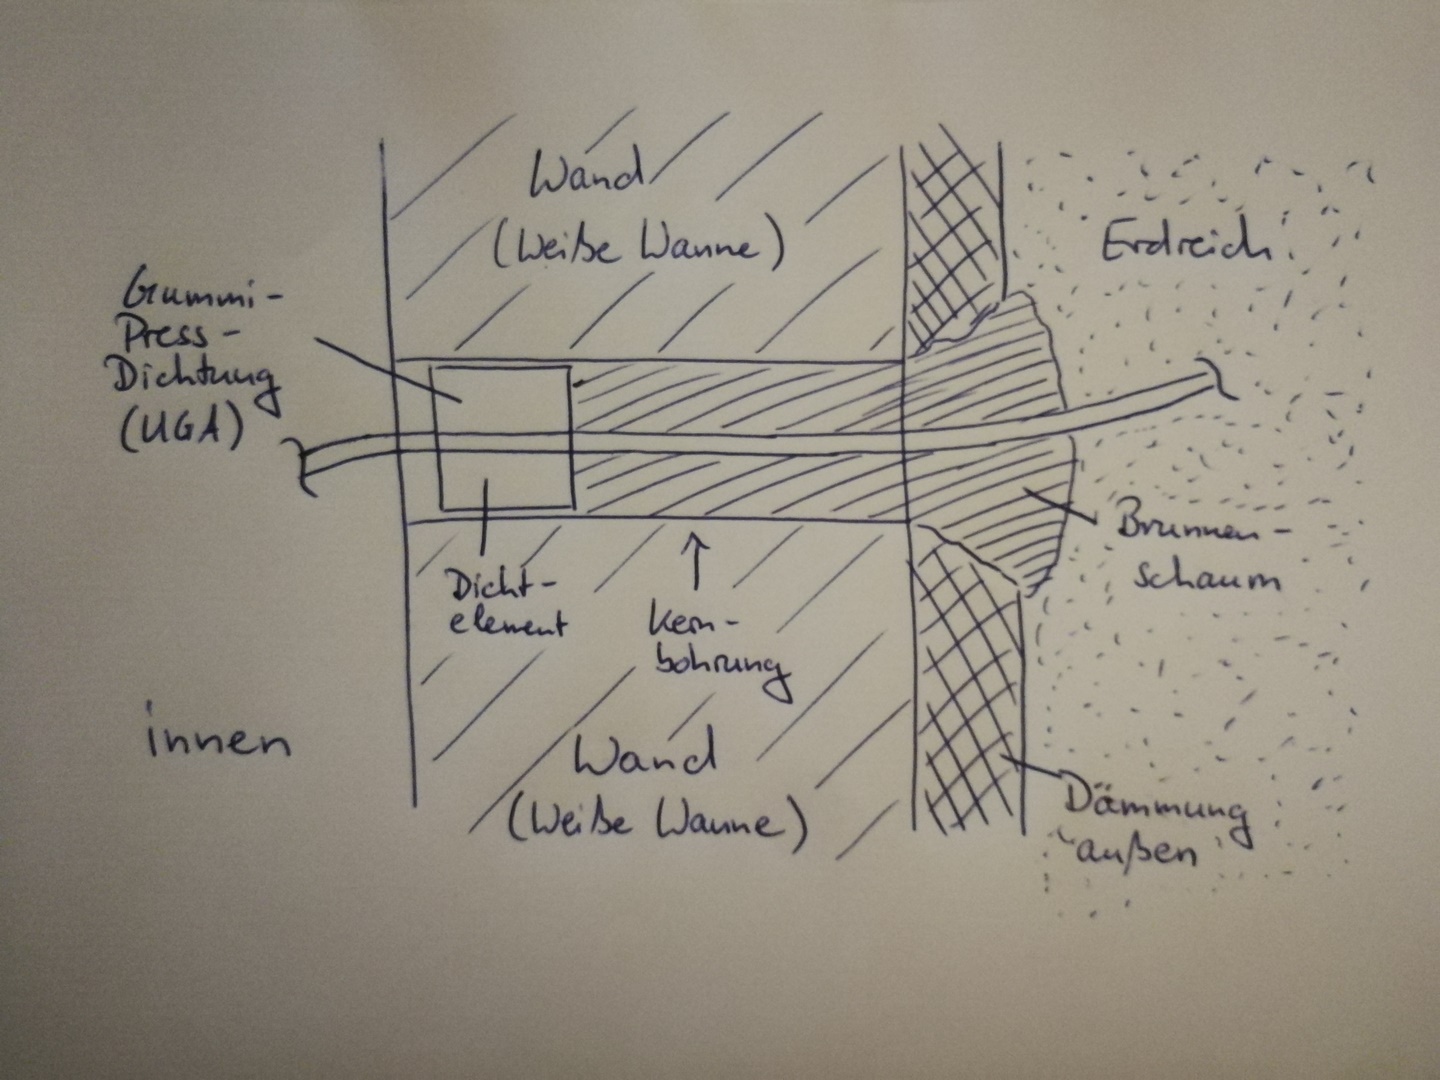 Wand
(Weiße Wanne)
Erdreich
Gummi-
Press-
Dichtung
(UGA)
Brunnen-
schaum
Dicht-
element
Kern-
bohrung
innen
Wand
(Weiße Wanne)
Dämmung
außen